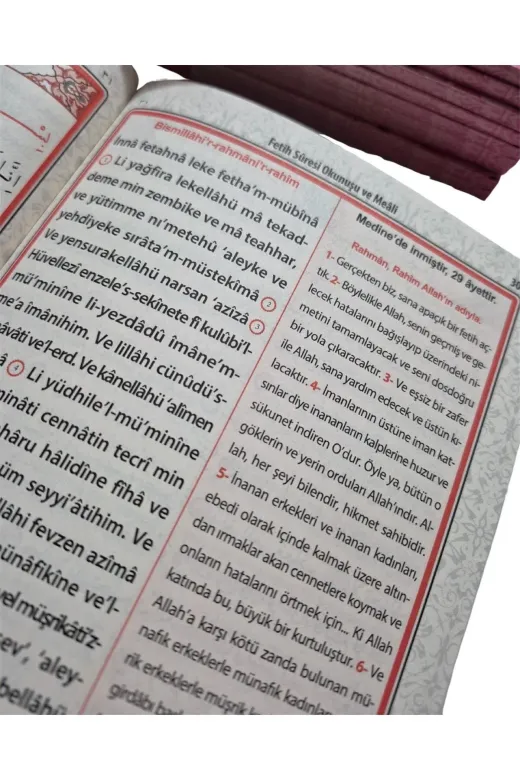 Fetih Sûresi Okunuşu ve Meâli
Bismillâhi'r-rahmâni'r-rahîm
İnnâ fetahnâ leke fetha'm-mübînâ
① Li yağfira lekellâhü mâ tekad-
deme min zembike ve mâ teahhar,
ve yütimme ni'metehû 'aleyke ve
yehdiyeke sırâta'm-müstekîmâ ②
Ve yensurakellâhü narsan 'azîzâ ③
Hüvellezî enzele's-sekînete fî kulûbi'l-
mü'minîne li-yezdâdû îmâne'm-
me'a îmânihim. Ve lillâhi cünûdü's-
vâti ve'l-erd. Ve kânellâhü 'alîmen
④ Li yüdhile'l-mü'minîne
minâti cennâtin tecrî min
hâru hâlidîne fîhâ ve
seyyi'âtihim. Ve
fevzen azîmâ
münâfikîne ve'l-
vel müşrikâti'z-
'aley-
Medîne'de inmiştir, 29 âyettir.
Rahmân, Rahîm Allah'ın adıyla.
1- Gerçekten biz, sana apaçık bir fetih aç-
tık. 2- Böylelikle Allah, senin geçmiş ve ge-
lecek hatalarını bağışlayıp üzerindeki ni-
metini tamamlayacak ve seni dosdoğru
bir yola çıkaracaktır. 3- Ve eşsiz bir zafer
ile Allah, sana yardım edecek ve üstün kı-
lacaktır. 4- İmanlarının üstüne iman kat-
sınlar diye inananların kalplerine huzur ve
sükunet indiren O'dur. Öyle ya, bütün o
göklerin ve yerin orduları Allah'ındır. Al-
lah, her şeyi bilendir, hikmet sahibidir.
5- İnanan erkekleri ve inanan kadınları,
ebedi olarak içinde kalmak üzere altın-
dan ırmaklar akan cennetlere koymak ve
onların hatalarını örtmek için... Ki Allah
katında bu, büyük bir kurtuluştur. 6- Ve
Allah'a karşı kötü zanda bulunan mü-
nafık erkeklerle münafık kadınları
rik erkeklerle müşrik
girdâbı